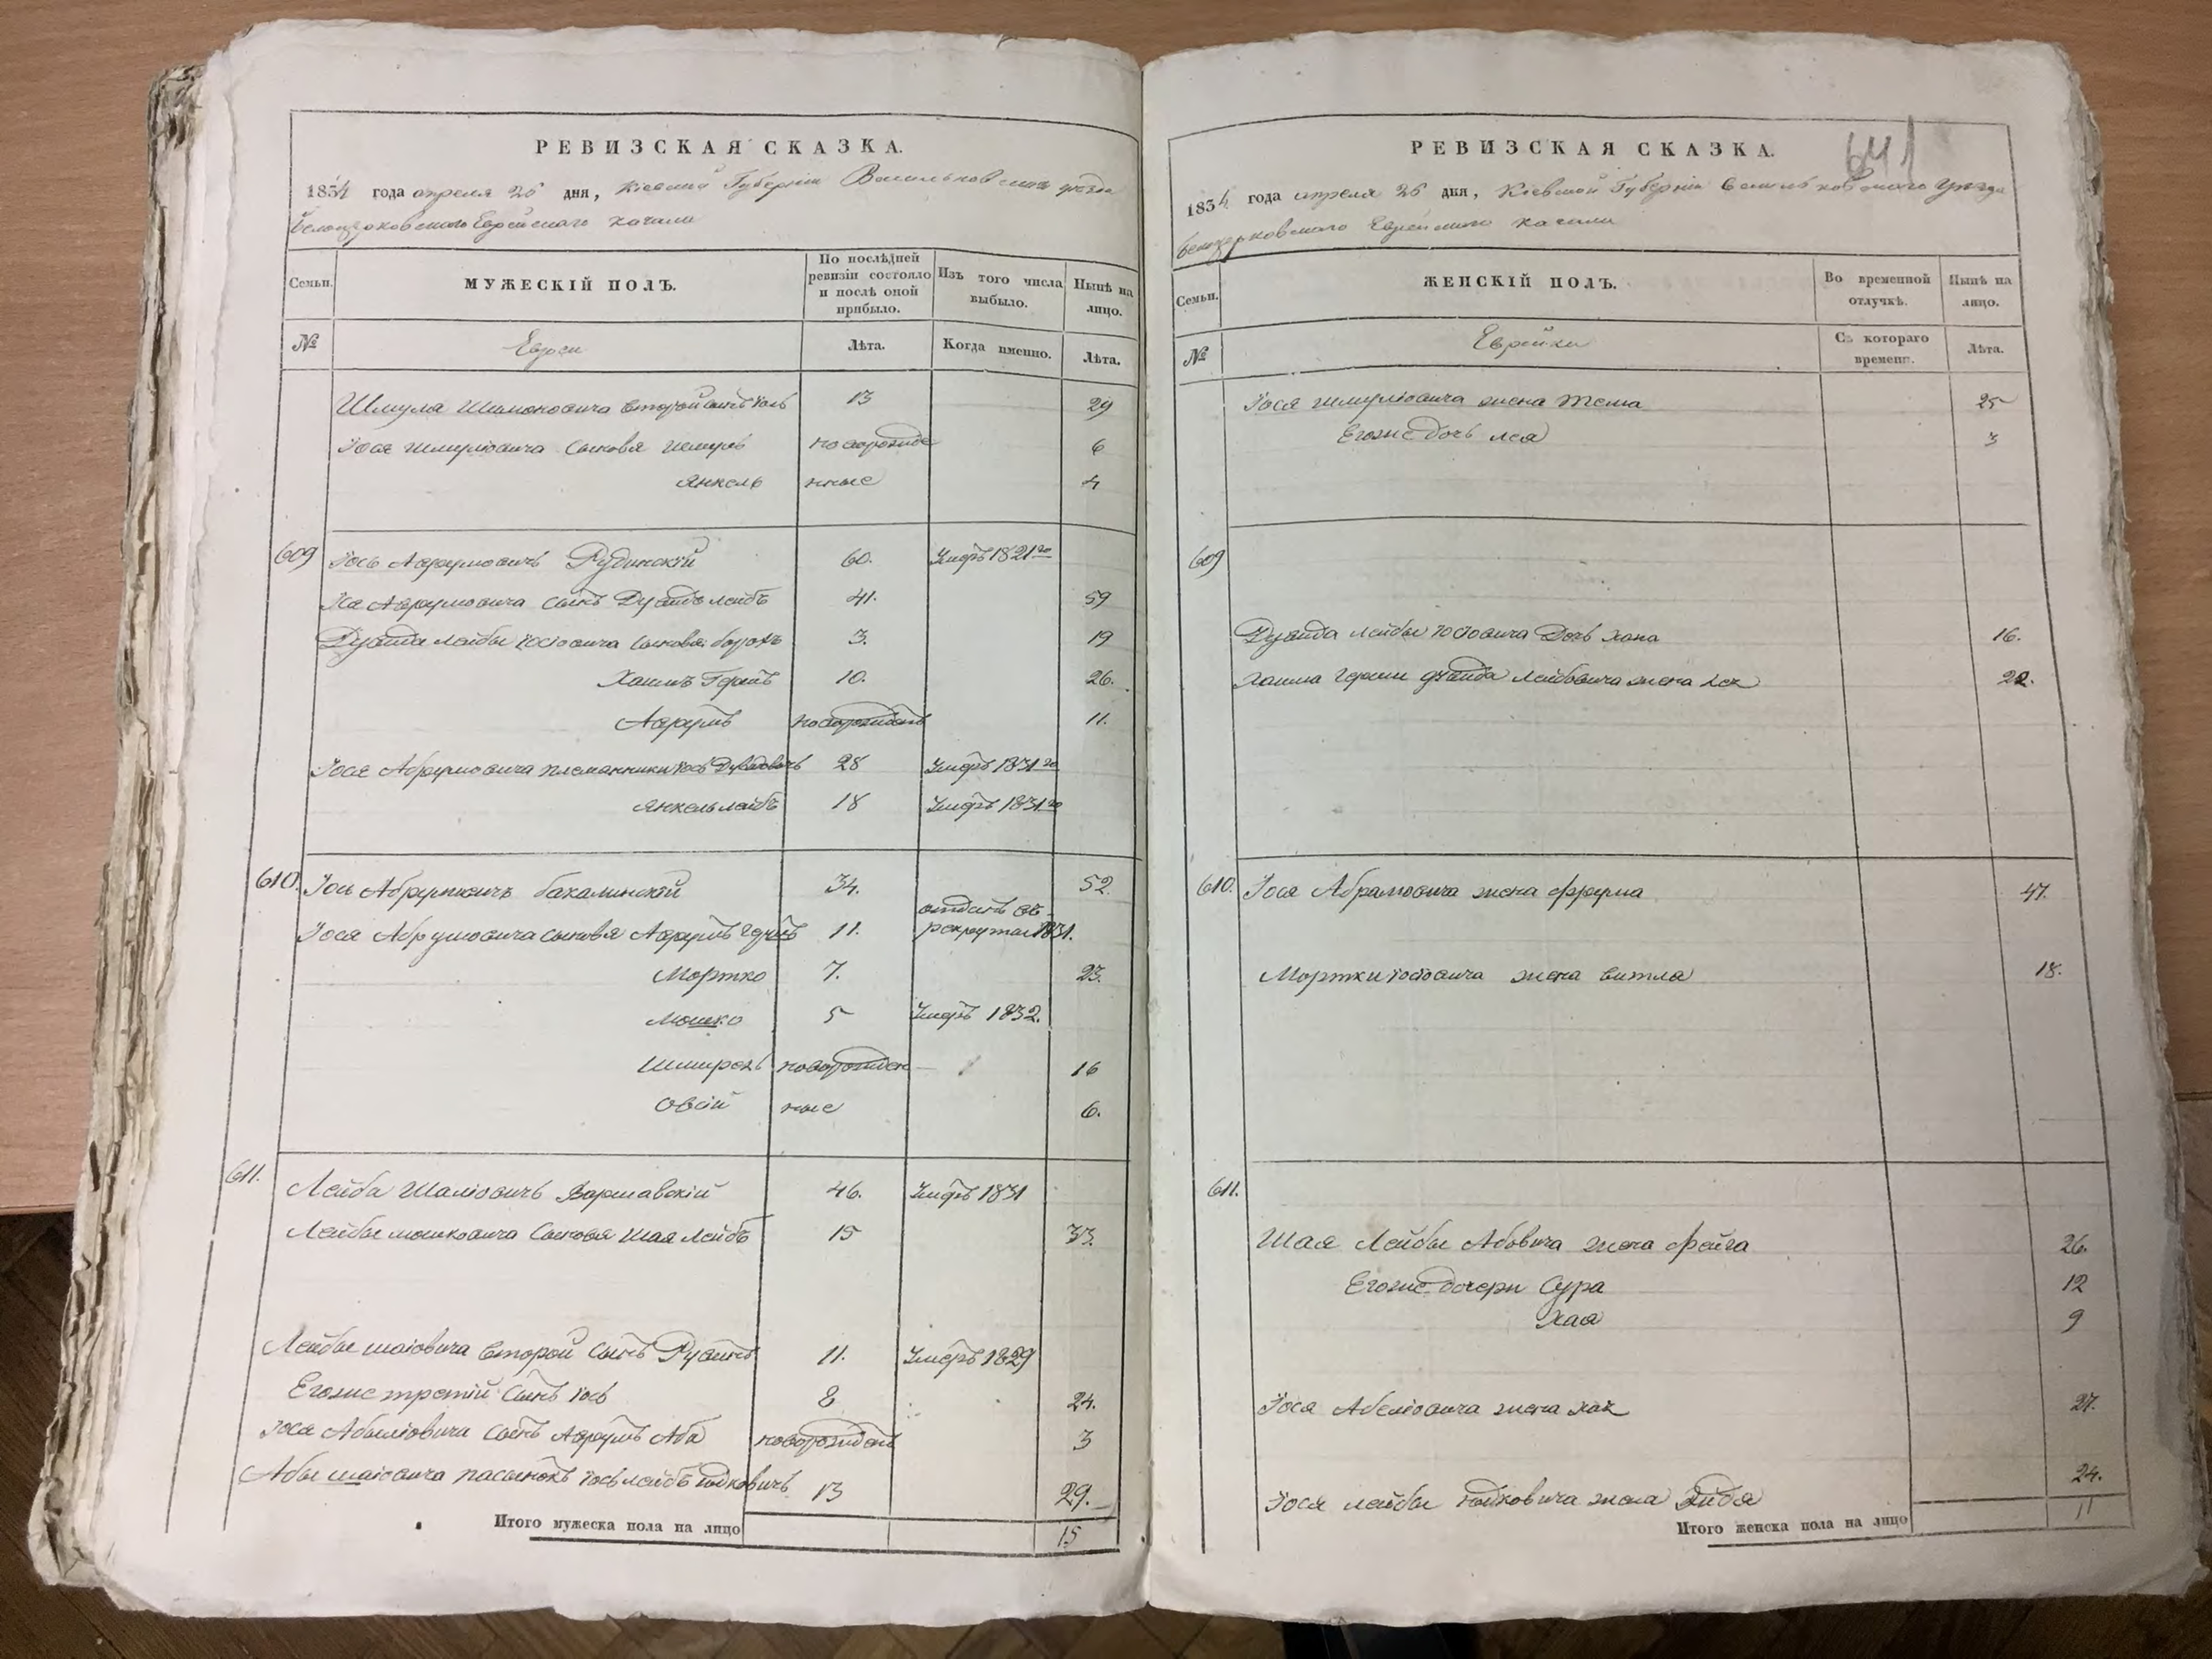 РЕВИЗСКАЯ СКАЗКА.
1834 года апреля 25 дня, Кіевской Губерніи Васильковскаго уезда
Белоцерковского Еврейскаго кагала
Семьи.
МУЖЕСКІЙ ПОЛЪ.
По послѣдней ревизіи состояло и послѣ оной прибыло.
Изъ того числа выбыло.
Нынѣ на лицо.
№
Евреи
Лѣта.
Когда именно.
Лѣта.
Шмула Шимоновича второй сынъ Іось 13 29
Іося Шмуліовича сыновя Шмуль новорожде 6
Янкель нные 4
609 Іось Аврумовичъ Рудинскій 60. Умеръ 1821го
Аврумовича сынъ Дувидъ Лейбъ 41. 59
Дувида Лейбы Іосіовича сыновя Борохъ 3. 19
Хаимъ Гершъ 10. 26.
Аврумъ новорожденъ 11.
Іося Абрумовича племянники Іось Дувидовичъ 28 Умеръ 1831го
Янкель Лейбъ 18 Умеръ 1831го
610. Іось Абрумовичъ Бакалинскій 34. 52.
Іося Абрумовича сыновя Аврумъ Гершъ 11. отданъ въ рекруты 1831.
Мортко 7. 23.
Мошко 5 Умеръ 1832.
новорожден 16
Овсій ные 6.
611. Лейба Шаліовичъ Варшавскій 46. Умеръ 1831
Лейбы Мошковича сыновя Шая Лейбъ 15 33.
Лейбы Шаіовича второй сынъ Рувинъ 11. Умеръ 1829
Егоже третій сынъ Іось 8 24.
Іося Абеліовича сынъ Аврумъ Аба новорожденъ 3
Абы Шаіовича пасынокъ Іось Лейбъ Юдковичъ 13 29.
Итого мужеска пола на лицо 15
641
РЕВИЗСКАЯ СКАЗКА.
1834 года апреля 25 дня, Кіевской Губерніи Васильковскаго уезда
Белоцерковского Еврейскаго кагала
Семьи.
ЖЕНСКІЙ ПОЛЪ.
Во временной отлучкѣ.
Нынѣ на лицо.
№
Еврейки
Съ котораго времени.
Лѣта.
Іося Шмуліовича жена Тема 25
Егоже дочь Лея 3
609
Дувида Лейбы Іосіовича дочь Хана 16.
Хаима Герши Дувида Лейбовича жена 22.
610. Іося Абрамовича жена Фрума 47.
Мортки Іосіовича жена Витла 18.
611.
Шая Лейбы Абовича жена Фейга 26.
Егоже дочери Сура 12
Хая 9
Іося Абеліовича жена Хая 27.
Іося Лейбы Юдковича жена 24.
Итого женска пола на лицо 11